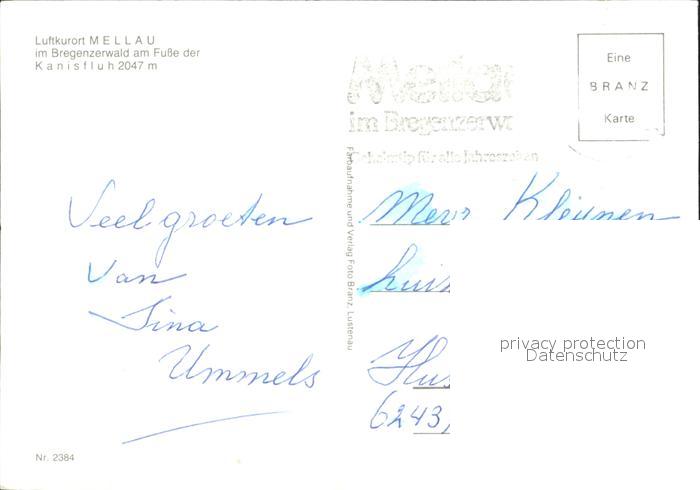 Luftkurort MELLAU
im Bregenzerwald am Fuße der
Kanisfluh 2047 m
Eine
BRANZ
Karte
im Bregenzerw
für alle Jahreszeiten
Farbaufnahme und Verlag Foto Branz, Lustenau
Veel groeten
van
Sina
Ummels
Mevr Kleunen
6243,
privacy protection
Datenschutz
Nr. 2384